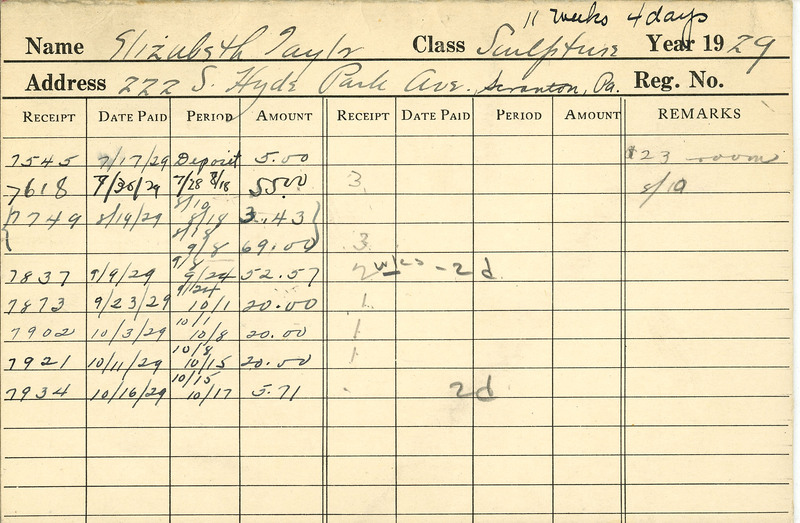 11 weeks 4 days
Name Elizabeth Taylor Class Sculpture Year 1929
Address 222 S. Hyde Park Ave. Scranton, Pa. Reg. No.
RECEIPT DATE PAID PERIOD AMOUNT RECEIPT DATE PAID PERIOD AMOUNT REMARKS
7545 7/17/29 Deposit 5.00 $23 room
7618 7/30/29 7/28 8/18 55.00 3 8/19
8/19
7749 8/19/29 8/18 3.43
8/18
9/8 69.00 3
9/8
7837 9/9/29 9/24 52.57 2 wks - 2d
9/24
7873 9/23/29 10/1 20.00 1
10/1
7902 10/3/29 10/8 20.00 1
10/8
7921 10/11/29 10/15 20.00 1
10/15
7934 10/16/29 10/17 5.71 2d